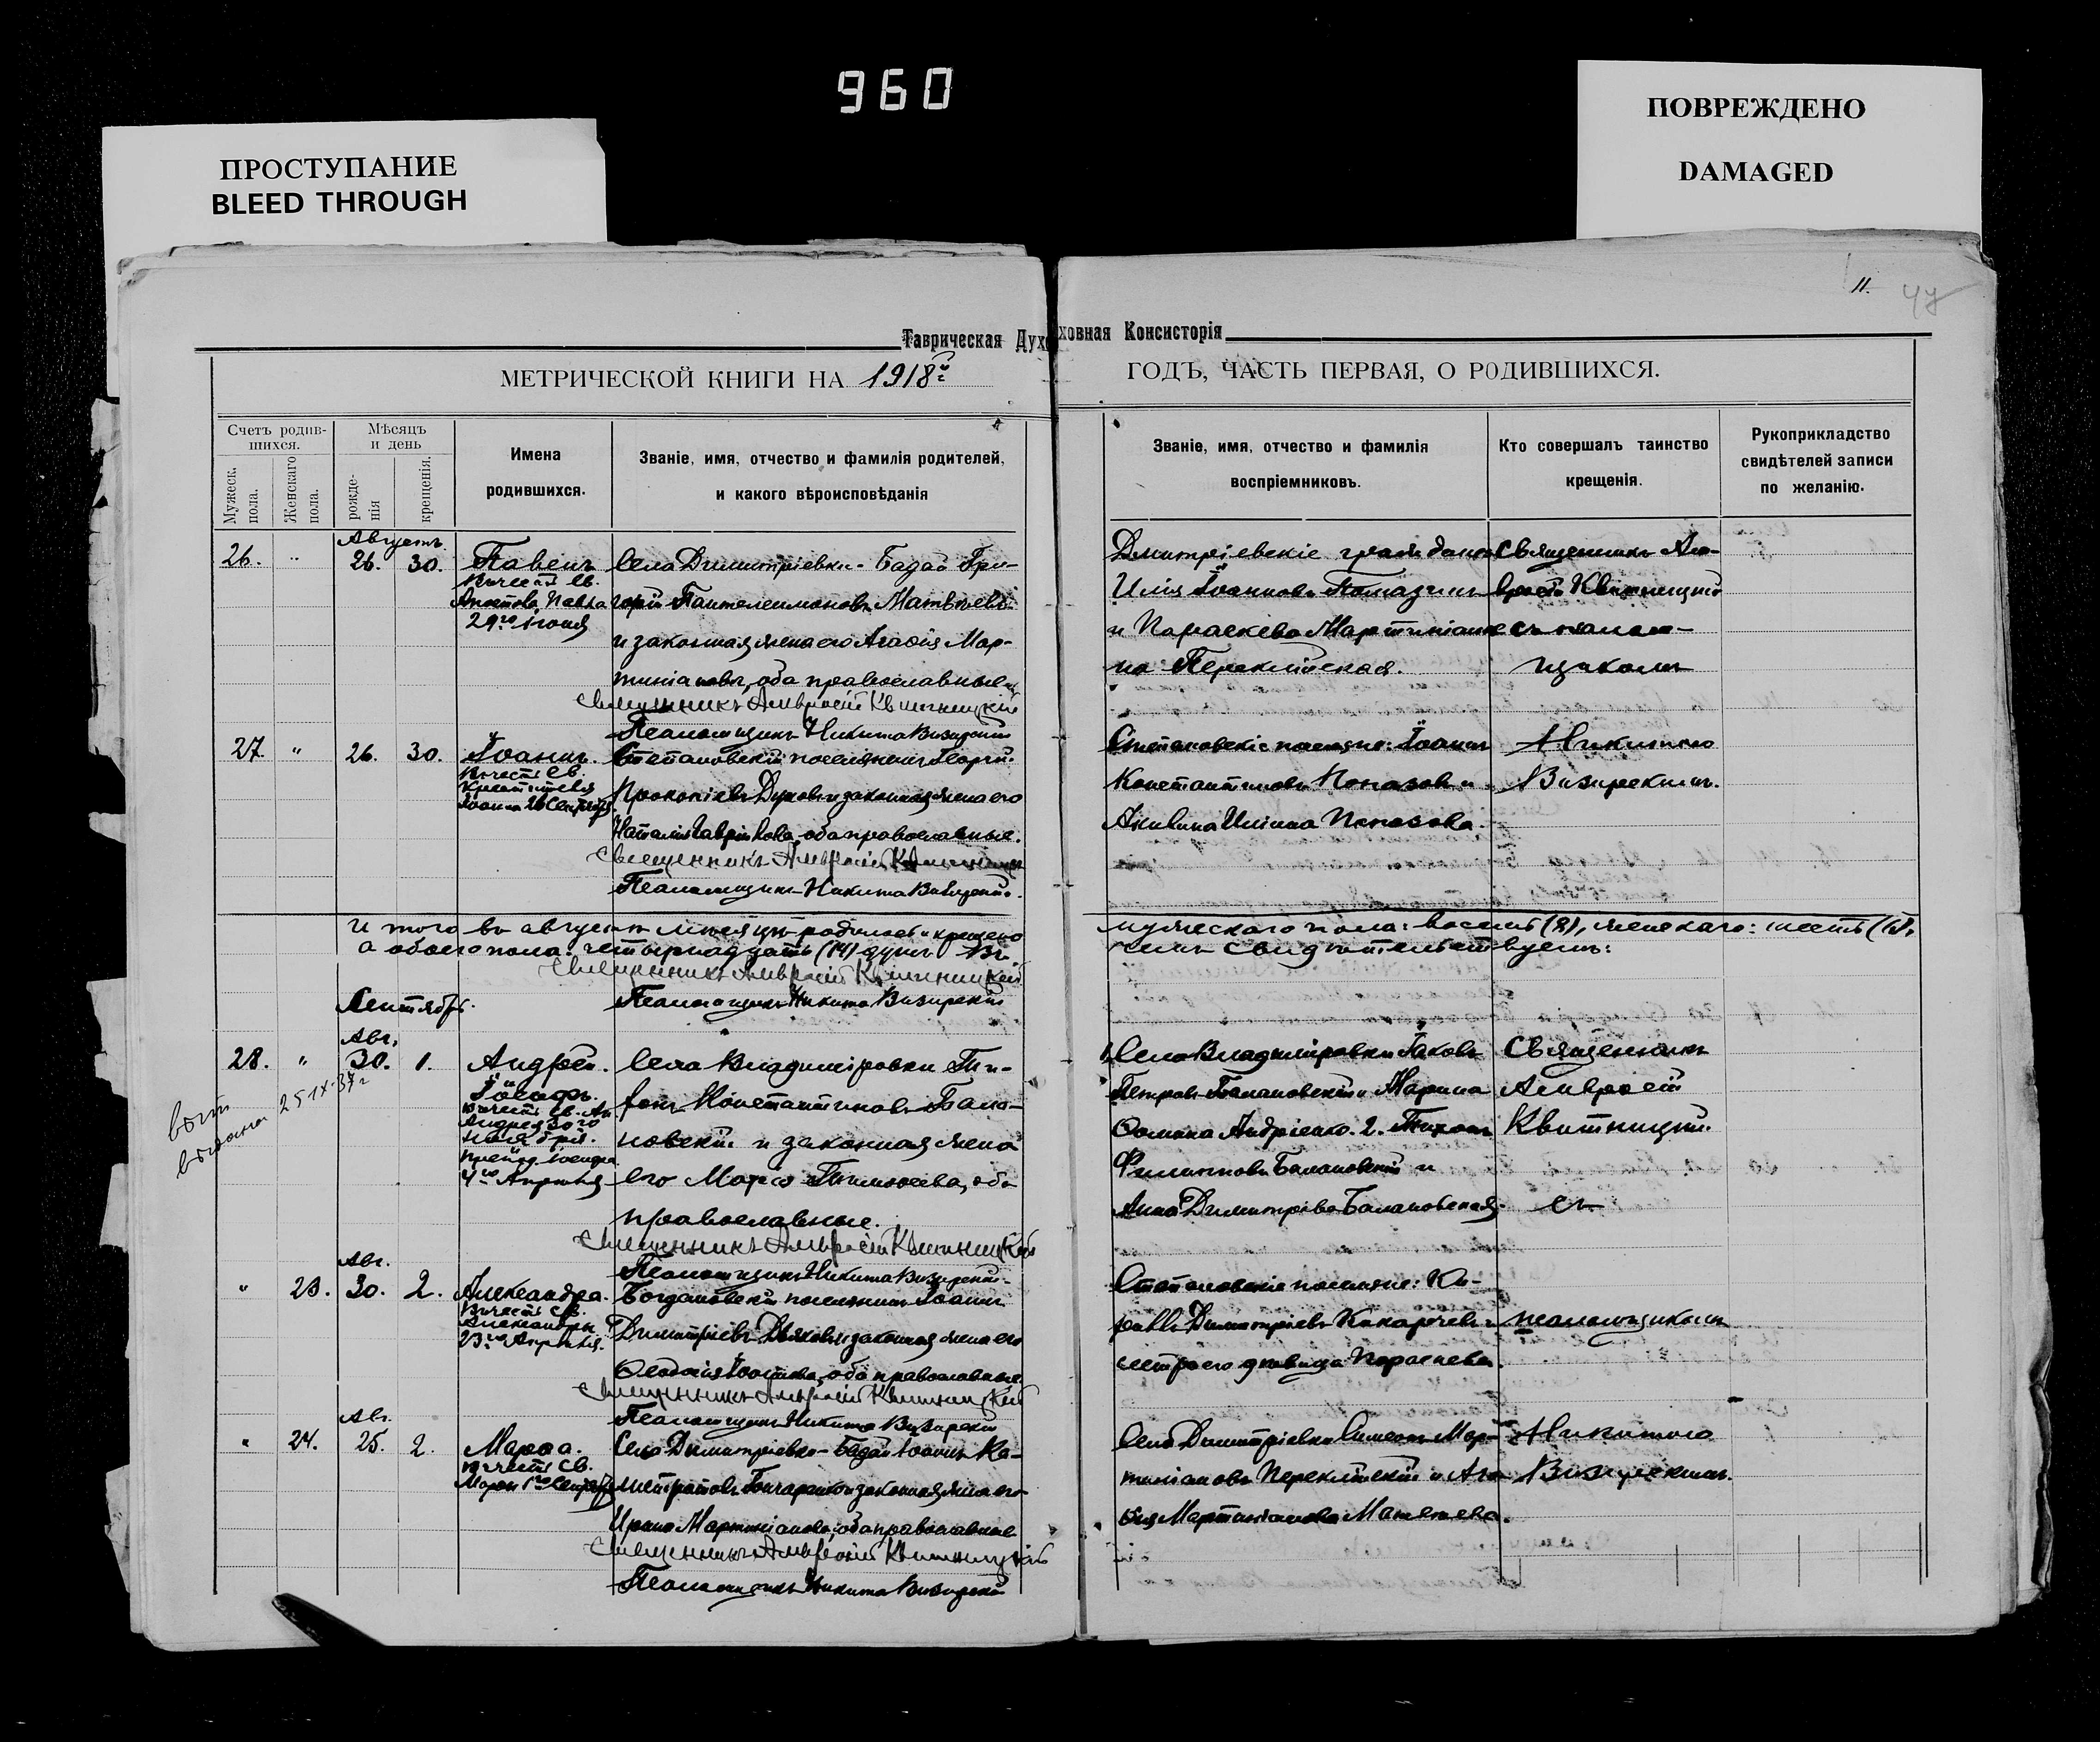 960
ПРОСТУПАНИЕ
BLEED THROUGH
ПОВРЕЖДЕНО
DAMAGED
11.
Таврическая Духовная Консисторія
МЕТРИЧЕСКОЙ КНИГИ НА 1918й ГОДЪ, ЧАСТЬ ПЕРВАЯ, О РОДИВШИХСЯ.
Счетъ родив-
шихся.
Мужеск. пола.
Женскаго пола.
Мѣсяцъ
и день
рожде-
нія
крещенія.
Имена
родившихся.
Званіе, имя, отчество и фамилія родителей,
и какого вѣроисповѣданія
Званіе, имя, отчество и фамилія
воспріемниковъ.
Кто совершалъ таинство
крещенія.
Рукоприкладство
свидѣтелей записи
по желанію.
Августъ
26. " 26. 30. Павелъ
въ честь св.
Апостола Павла
29го Іюня
Села Димитріевки-Бадай Гри-
горій Пантелеимоновъ Матвѣевъ
и законная жена его Агаѳія Мар-
тиніанова, оба православные
Священникъ Амвросій Квитницкій
Псаломщикъ Никита Визирскій
Димитріевскіе граждане
Илія Іоанновъ
и Параскева Мартиніано-
ва Перекитская.
Священникъ Ам-
вросій Квитницкій
съ псалом-
щикомъ
27 " 26. 30. Іоаннъ.
въ честь св.
Крестителя
Степановскій поселянинъ Георгій
Прокопіевъ и законная жена его
Наталія оба православные.
Священникъ Амвросій Квитницкій
Псаломщикъ Никита Визирскій.
Степановскіе поселяне: Іоаннъ
Константиновъ Попазовъ и
Акилина Иліина Попазова.
Никитою
Визирскимъ.
Итого въ августѣ мѣсяцѣ родилось и крещено мужескаго пола: восемь (8), женскаго: шесть (6),
а обоего пола: четырнадцать (14) душъ. Въ чемъ свидѣтельствуемъ:
Священникъ Амвросій Квитницкій
Псаломщикъ Никита Визирскій
Сентябрь.
Авг.
28. " 30. 1. Андрей.
Іосифъ.
Андрея 30го
ноября.
4го Апрѣля
выдана 25 IX-37г
Села Владиміровки
Константиновъ Бала-
новскій и законная жена
его Марія Тимоѳеева, оба
православные.
Священникъ Амвросій Квитницкій
Псаломщикъ Никита Визирскій.
1. Села Владиміровки Іаковъ
Петровъ Балановскій и Марина
Андріенко. 2. Тихонъ
Филипповъ Балановскій и
Анна Димитріева Балановская.
Священникъ
Амвросій
Квитницкій
съ
Авг.
" 23. 30. 2. Александра.
въ честь св.
Александры
23го Апрѣля.
Богдановскій поселянинъ Іоаннъ
Димитріевъ Дьяковъ и законная жена его
Ѳеодосія оба православные
Священникъ Амвросій Квитницкій
Псаломщикъ Никита Визирскій
Степановскіе поселяне: Ки-
риллъ Димитріевъ Какарчевъ и
сестра его дѣвица Параскева.
псаломщикомъ
Авг.
" 24. 25. 2. Марѳа.
въ честь св.
Марѳы 1го Сентября
Села Димитріевки-Бадай Іоаннъ Ка-
листратовъ Гончаренко и законная жена его
Ирина Мартиніанова, оба православные
Священникъ Амвросій Квитницкій
Псаломщикъ Никита Визирскій
Села Димитріевки Симеонъ Мар-
тиніановъ Перекитскій и Ага-
ѳія Мартиніанова Матвѣева.
Никитою
Визирскимъ.